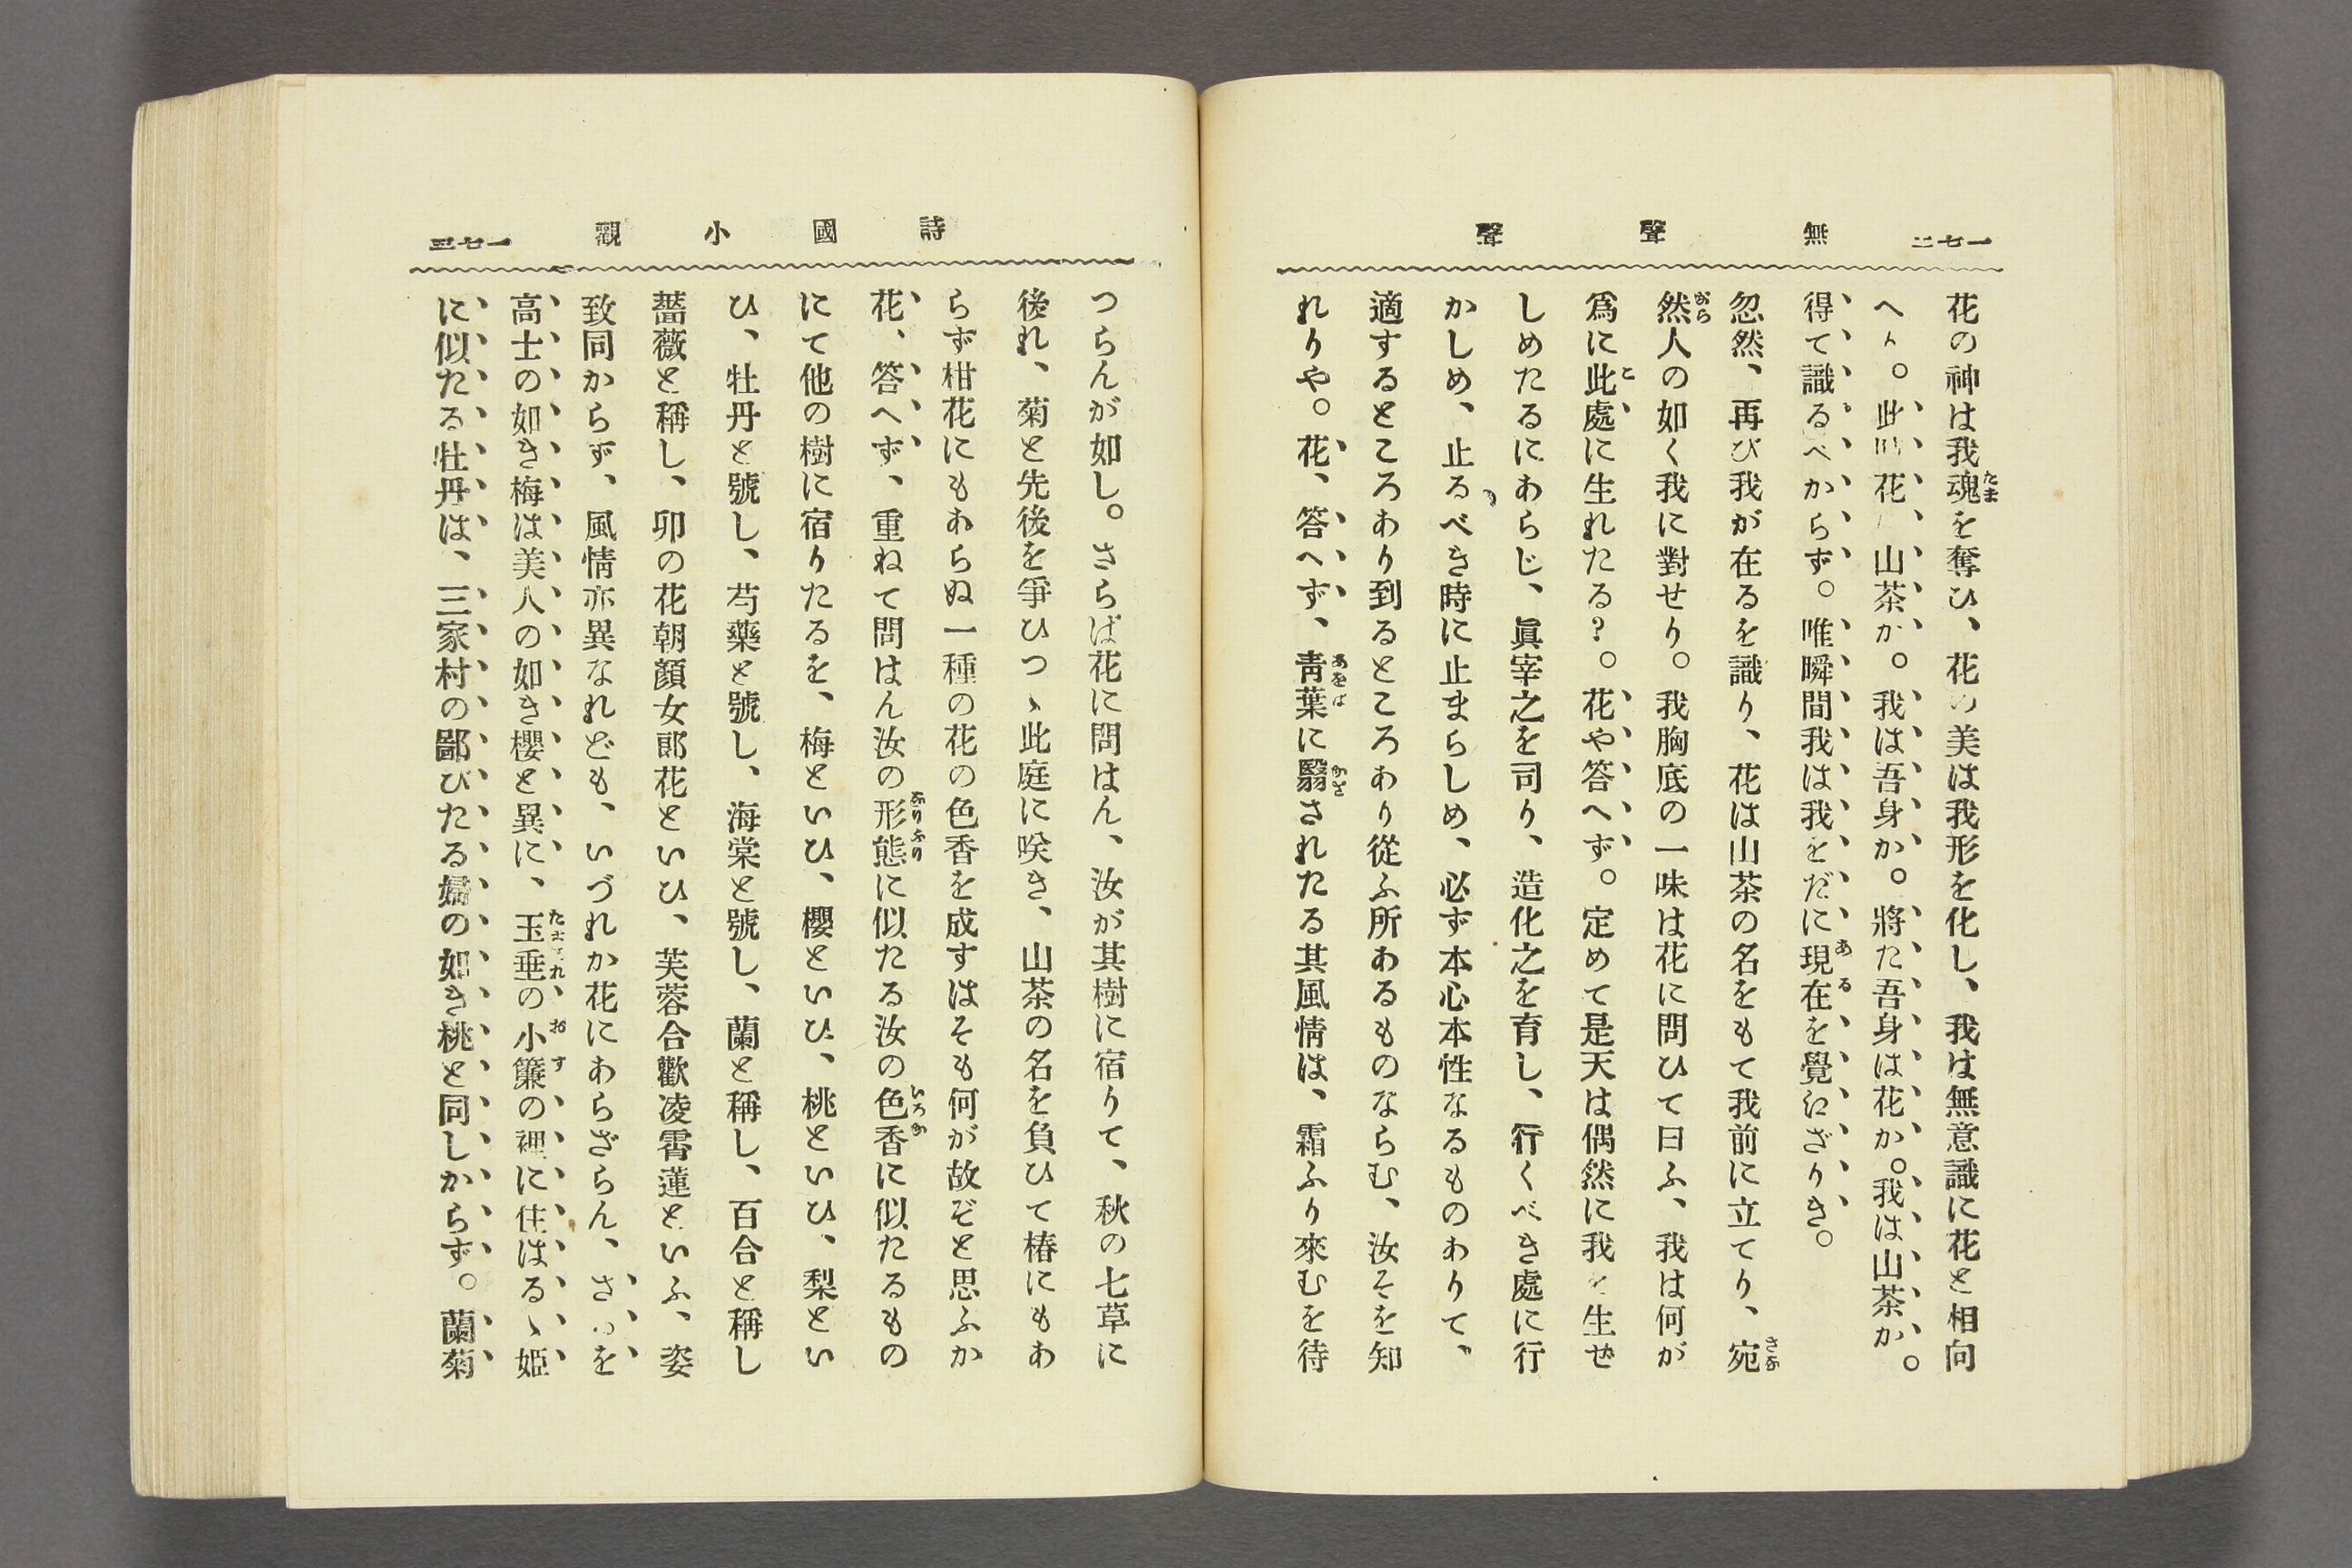 一七二
無聲聲
花の神は我魂を奪ひ、花の美は我形を化し、我は無意識に花と相向
へり。此時花、山茶か。我は吾身か。將た吾身は花か。我は山茶か。
得て識るべからず。唯瞬間我は我をだに現在を覺江ざりき。
忽然、再び我が在るを識り、花は山茶の名をもて我前に立てり、宛
然人の如く我に對せり。我胸底の一味は花に問ひて曰ふ、我は何が
爲に此處に生れたる?。花や答へず。定めて是天は偶然に我を生せ
しめたるにあらじ、眞宰之を司り、造化之を育し、行くべき處に行
かしめ、止るべき時に止まらしめ、必ず本心本性なるものありて、
適するところあり到るところあり從ふ所あるものならむ、汝そを知
れりや。花、答へず、靑葉に翳されたる其風情は、霜ふり來むを待
詩國小觀
一七三
つらんが如し。さらば花に問はん、汝が其樹に宿りて、秋の七草に
後れ、菊と先後を爭ひつゝ此庭に咲き、山茶の名を負ひて椿にもあ
らず柑花にもあらぬ一種の花の色香を成すはそも何が故ぞと思ふか
花、答へず、重ねて問はん汝の形態に似たる汝の色香に似たるもの
にて他の樹に宿りたるを、梅といひ、櫻といひ、桃といひ、梨とい
ひ、牡丹と號し、芍藥と號し、海棠と號し、蘭と稱し、百合と稱し
薔薇と稱し、卯の花朝顏女郎花といひ、芙蓉合歡凌霄蓮といふ、姿
致同からず、風情亦異なれども、いづれか花にあらざらん、さるを
高士の如き梅は美人の如き櫻と異に、玉垂の小簾の裡に住はるゝ姫
に似たる牡丹は、三家村の鄙びたる婦の如き桃と同しからず。蘭菊